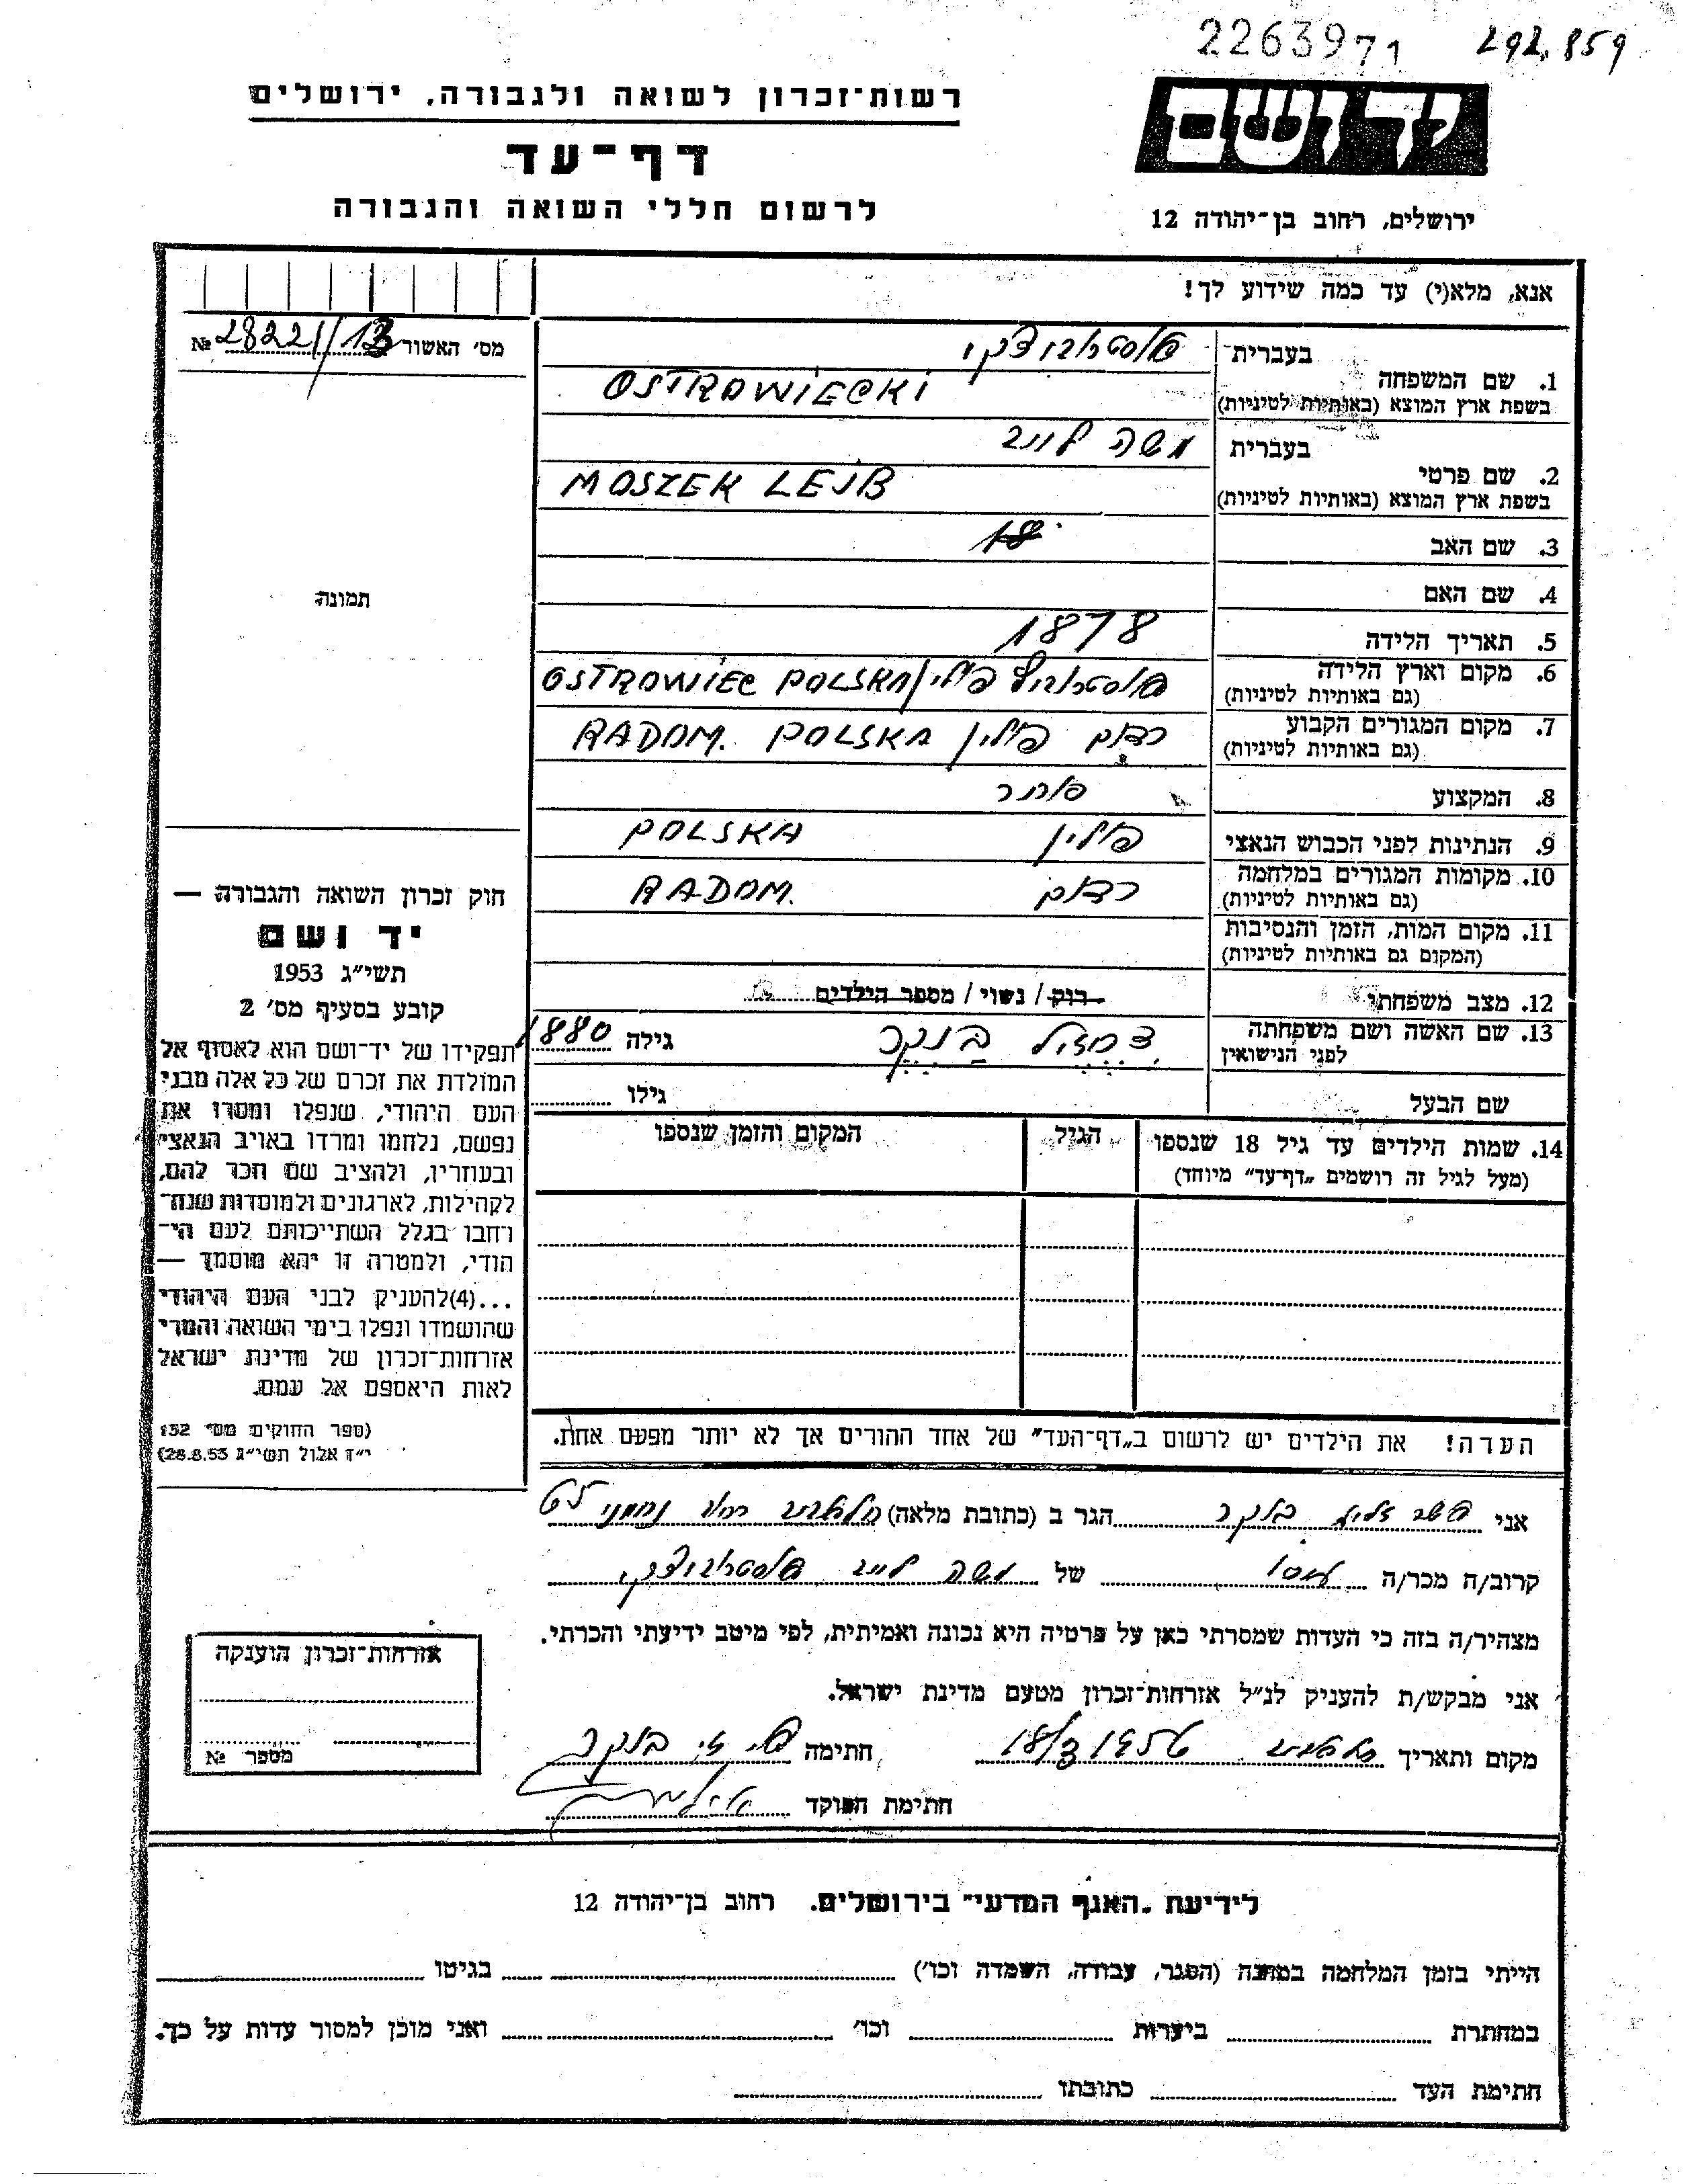 2263971 292.859
יד ושם
רשות־זכרון לשואה ולגבורה, ירושלים
דף־עד
לרשום חללי השואה והגבורה
ירושלים, רחוב בן־יהודה 12
אנא, מלא(י) עד כמה שידוע לך!
מס׳ האשור 28221/13 №
1. שם המשפחה בעברית אוסטרוביצקי
בשפת ארץ המוצא (באותיות לטיניות) OSTROWIECKI
2. שם פרטי בעברית משה לייב
בשפת ארץ המוצא (באותיות לטיניות) MOSZEK LEJB
3. שם האב 18
4. שם האם
5. תאריך הלידה 1878
6. מקום וארץ הלידה פולין OSTROWIEC POLSKA
(גם באותיות לטיניות)
7. מקום המגורים הקבוע רדום פולין RADOM. POLSKA
(גם באותיות לטיניות)
8. המקצוע סוחר
9. הנתינות לפני הכבוש הנאצי פולין POLSKA
10. מקומות המגורים במלחמה רדום RADOM.
(גם באותיות לטיניות)
11. מקום המות, הזמן והנסיבות
(המקום גם באותיות לטיניות)
12. מצב משפחתי רוק / נשוי / מספר הילדים
13. שם האשה ושם משפחתה גילה 1880
לפני הנישואין
שם הבעל גילו
14. שמות הילדים עד גיל 18 שנספו הגיל המקום והזמן שנספו
(מעל לגיל זה רושמים „דף־עד״ מיוחד)
הערה! את הילדים יש לרשום ב„דף־העד״ של אחד ההורים אך לא יותר מפעם אחת.
תמונה
חוק זכרון השואה והגבורה —
יד ושם
תשי״ג 1953
קובע בסעיף מס׳ 2
תפקידו של יד־ושם הוא לאסוף אל
המולדת את זכרם של כל אלה מבני
העם היהודי, שנפלו ומסרו את
נפשם, נלחמו ומרדו באויב הנאצי
ובעוזריו, ולהציב שם וזכר להם,
לקהילות, לארגונים ולמוסדות שנח־
רחבו בגלל השתייכותם לעם הי־
הודי, ולמטרה זו יהא מוסמך —
...(4)להעניק לבני העם היהודי
שהושמדו ונפלו בימי השואה והמרי
אזרחות־זכרון של מדינת ישראל
לאות היאספם אל עמם.
(ספר החוקים מס׳ 132
י״ז אלול תשי״ג 28.8.53)
אני בונקר הגר ב (כתובת מלאה)
קרוב/ה מכר/ה של משה לייב אוסטרוביצקי
מצהיר/ה בזה כי העדות שמסרתי כאן על פרטיה היא נכונה ואמיתית, לפי מיטב ידיעתי והכרתי.
אני מבקש/ת להעניק לנ״ל אזרחות־זכרון מטעם מדינת ישראל.
מקום ותאריך 18/3 1956 חתימה בונקר
חתימת הפוקד
אזרחות־זכרון הוענקה
מספר №
לידיעת „האגף המדעי״ בירושלים. רחוב בן־יהודה 12
הייתי בזמן המלחמה במחנה (הסגר, עבודה, השמדה וכו׳) בגיטו
במחתרת ביערות וכו׳ ואני מוכן למסור עדות על כך.
חתימת העד כתובתו